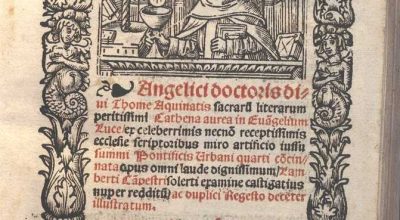 Angelici doctoris di
ui Thome Aquinatis sacrarū literarum
peritissimi Cathena aurea in Euāgelium
Luce/ex celeberrimis necnō receptissimis
ecclesie scriptoribus miro artificio iussu
summi Pontificis Urbani quarti cōcin
nata/opus omni laude dignissimum/Lam
berti Cāpestri solerti examine castigatius
nuper redditū/ac duplici Regesto decēter
illustratum.